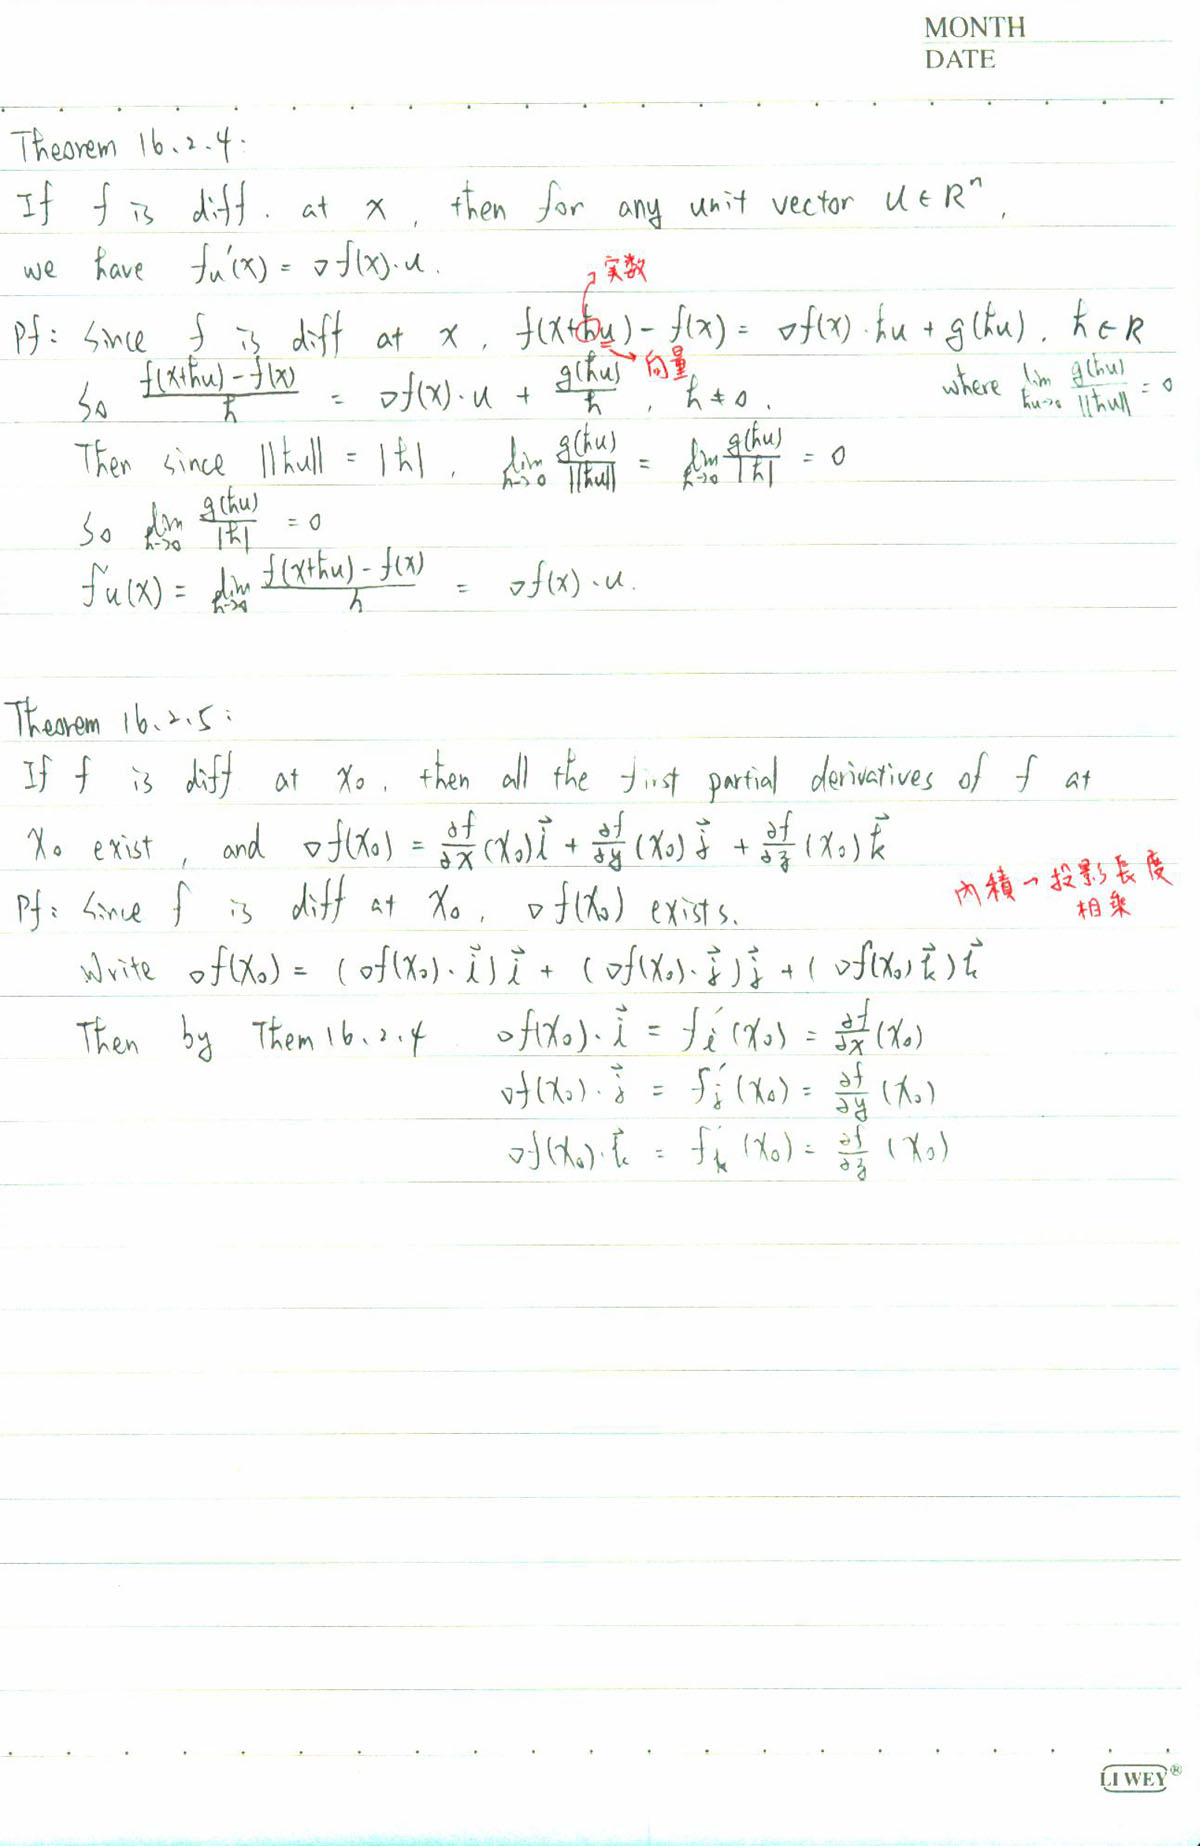 MONTH
DATE
Theorem 16.2.4:
If f is diff. at x, then for any unit vector u ∈ R^n,
we have fu'(x) = ▽f(x)·u.
實数
Pf: Since f is diff at x, f(x+hu) - f(x) = ▽f(x)·hu + g(hu), h ∈ R
向量
So (f(x+hu) - f(x))/h = ▽f(x)·u + g(hu)/h, h ≠ 0. where lim hu→0 g(hu)/||hu|| = 0
Then since ||hu|| = |h|, lim h→0 g(hu)/||hu|| = lim h→0 g(hu)/|h| = 0
So lim h→0 g(hu)/|h| = 0
f'u(x) = lim h→0 (f(x+hu) - f(x))/h = ▽f(x)·u.
Theorem 16.2.5:
If f is diff at x₀, then all the first partial derivatives of f at
x₀ exist, and ▽f(x₀) = ∂f/∂x (x₀) i⃗ + ∂f/∂y (x₀) j⃗ + ∂f/∂z (x₀) k⃗
內積→投影長度
相乘
Pf: Since f is diff at x₀, ▽f(x₀) exists.
Write ▽f(x₀) = (▽f(x₀)·i⃗) i⃗ + (▽f(x₀)·j⃗) j⃗ + (▽f(x₀) k⃗) k⃗
Then by Them 16.2.4 ▽f(x₀)·i⃗ = f'i(x₀) = ∂f/∂x (x₀)
▽f(x₀)·j⃗ = f'j(x₀) = ∂f/∂y (x₀)
▽f(x₀)·k⃗ = f'k(x₀) = ∂f/∂z (x₀)
LI WEY®